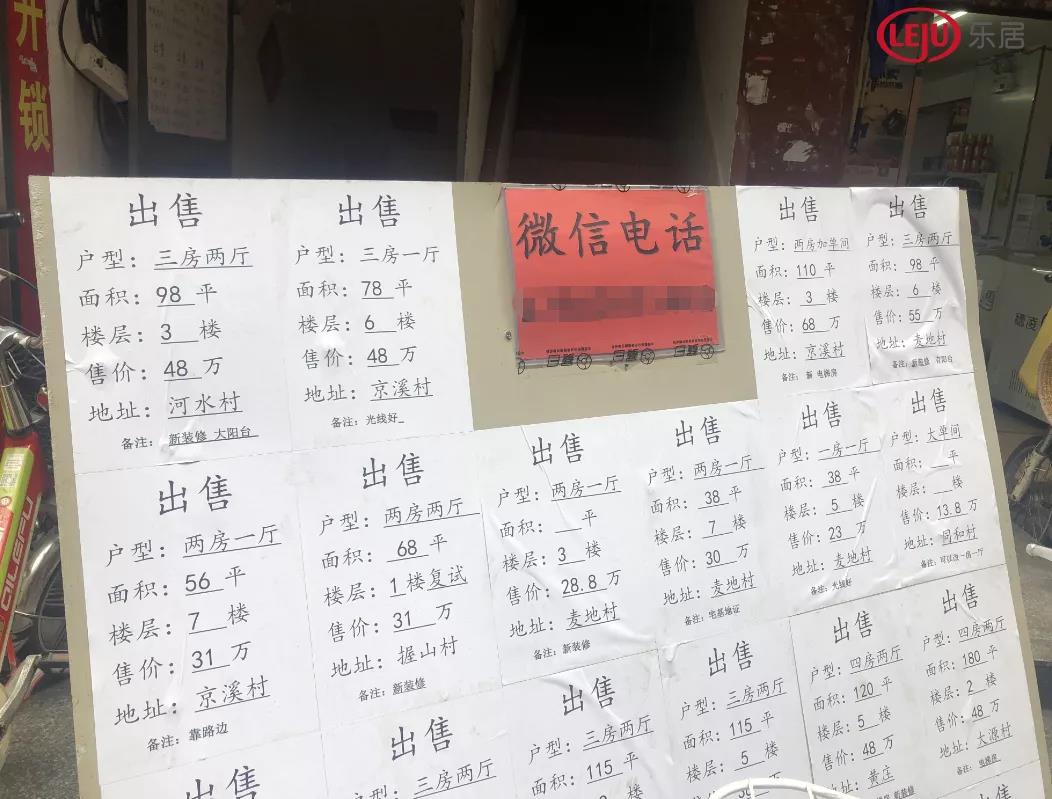 LEJU 乐居
开锁
出售
户型：三房两厅
面积：98 平
楼层：3 楼
售价：48 万
地址：河水村
备注：新装修 大阳台
出售
户型：三房一厅
面积：78 平
楼层：6 楼
售价：48 万
地址：京溪村
备注：光线好
微信电话
出售
户型：两房加单间
面积：110 平
楼层：3 楼
售价：68 万
地址：京溪村
备注：新 电梯房
出售
户型：三房两厅
面积：98 平
楼层：6 楼
售价：55 万
地址：麦地村
备注：新装修 有阳台
出售
户型：两房一厅
面积：56 平
楼层：7 楼
售价：31 万
地址：京溪村
备注：靠路边
出售
户型：两房两厅
面积：68 平
楼层：1 楼复试
售价：31 万
地址：握山村
备注：新装修
出售
户型：两房一厅
面积：平
楼层：3 楼
售价：28.8 万
地址：麦地村
备注：新装修
出售
户型：两房一厅
面积：38 平
楼层：7 楼
售价：30 万
地址：麦地村
备注：宅基地证
出售
户型：一房一厅
面积：38 平
楼层：5 楼
售价：23 万
地址：麦地村
备注：光线好
出售
户型：大单间
面积：平
楼层：楼
售价：13.8 万
地址：同和村
备注：可以改一房一厅
出售
出售
户型：三房两厅
出售
户型：三房两厅
面积：115 平
出售
户型：三房两厅
面积：115 平
楼层：5 楼
出售
户型：四房两厅
面积：120 平
楼层：5 楼
售价：48 万
地址：黄庄
新装修
出售
户型：四房两厅
面积：180 平
楼层：2 楼
售价：48 万
地址：大源村
备注：电梯房
出售